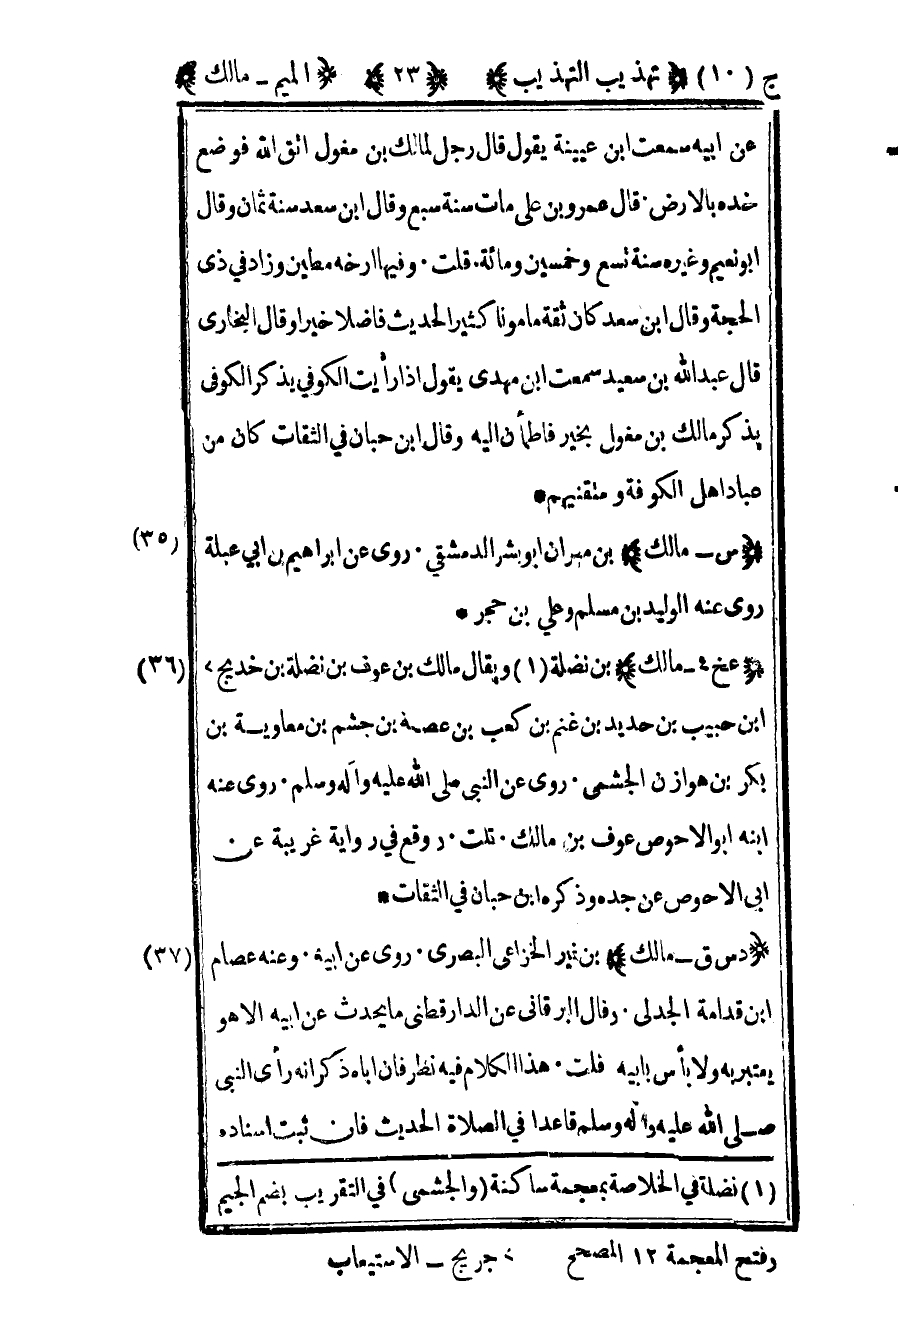 ج (١٠) ﴿ تهذيب التهذيب ﴾ ﴿ ٢٣ ﴾ ﴿ الميم ـ مالك ﴾
عن ابيه سمعت ابن عيينة يقول قال رجل لمالك بن مغول اتق الله فوضع
خده بالارض · قال عمرو بن على مات سنة سبع وقال ابن سعد سنة ثمان وقال
ابو نعيم وغيره سنة تسع وخمسين ومائة · قلت · وفيها ارخه مطين وزاد في ذى
الحجة وقال ابن سعد كان ثقة مامونا كثير الحديث فاضلا خيرا وقال البخارى
قال عبد الله بن سعيد سمعت ابن مهدى يقول اذا رأيت الكوفي يذكر الكوفى
يذكر مالك بن مغول بخير فاطمأن اليه وقال ابن حبان في الثقات كان من
عباد اهل الكوفة و متقنيهم *
(٣٥) ﴿ س ـ مالك ﴾ بن مهران ابو بشر الدمشقي · روى عن ابراهيم بن ابي عبلة
روى عنه الوليد بن مسلم وعلي بن حجر *
(٣٦) ﴿ عخ ٤ ـ مالك ﴾ بن نضلة (١) ويقال مالك بن عوف بن نضلة بن خديج >
ابن حبيب بن حديد بن غنم بن كعب بن عصمة بن جشم بن معاوية بن
بكر بن هوازن الجشمى · روى عن النبى صلى الله عليه وآله وسلم · روى عنه
ابنه ابو الاحوص عوف بن مالك · قلت · وقع في رواية غريبة عن
ابى الاحوص عن جده وذكره ابن حبان في الثقات *
(٣٧) ﴿ د س ق ـ مالك ﴾ بن نمير الخزاعى البصرى · روى عن ابيه · وعنه عصام
ابن قدامة الجدلى · وقال البرقانى عن الدارقطنى ما يحدث عن ابيه الا هو
يعتبر به ولا بأس بابيه قلت · هذا الكلام فيه نظر فان اباه ذكر انه رأى النبى
صلى الله عليه وآله وسلم قاعدا في الصلاة الحديث فان ثبت اسناده
(١) نضلة في الخلاصة بمعجمة ساكنة (والجشمى) في التقريب بضم الجيم
وفتح المعجمة ١٢ المصحح > جريج ـ الاستيعاب